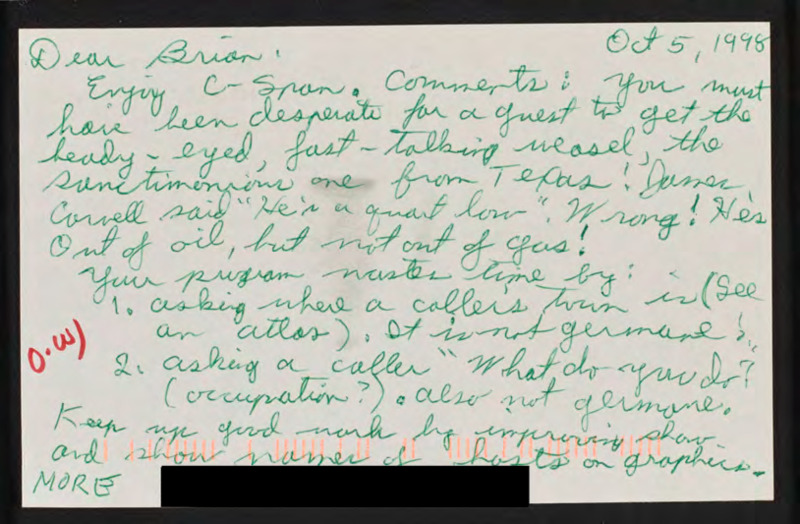 Oct 5, 1998
Dear Brian:
Enjoy C-Span. Comments: you must
have been desperate for a guest to get the
beady-eyed, fast-talking weasel, the
sanctimonious one from Texas! James
Carvell said "He's a quart low". Wrong! He's
Out of oil, but not out of gas!
Your program wastes time by:
1. asking where a callers town is (See
an atlas). It is not germane!
O.W)
2. asking a caller "What do you do?
(occupation?). also not germane.
Keep up good work by improving show.
and show names of hosts on graphics.
MORE